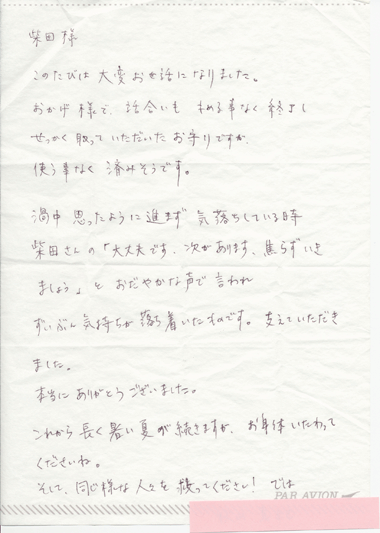 柴田様
このたびは大変お世話になりました。
おかげ様で、話合いも もめる事なく終了し
せっかく取っていただいたお守りですが、
使う事なく 済みそうです。
渦中 思ったように進まず 気落ちしている時
柴田さんの「大丈夫です、次があります、焦らずいき
ましょう」と おだやかな声で言われ
ずいぶん気持ちが落ち着いたものです。支えていただき
ました。
本当にありがとうございました。
これから長く暑い夏が続きますが、お身体いたわって
くださいね。
そして、同じ様な人々を救ってください! では
PAR AVION